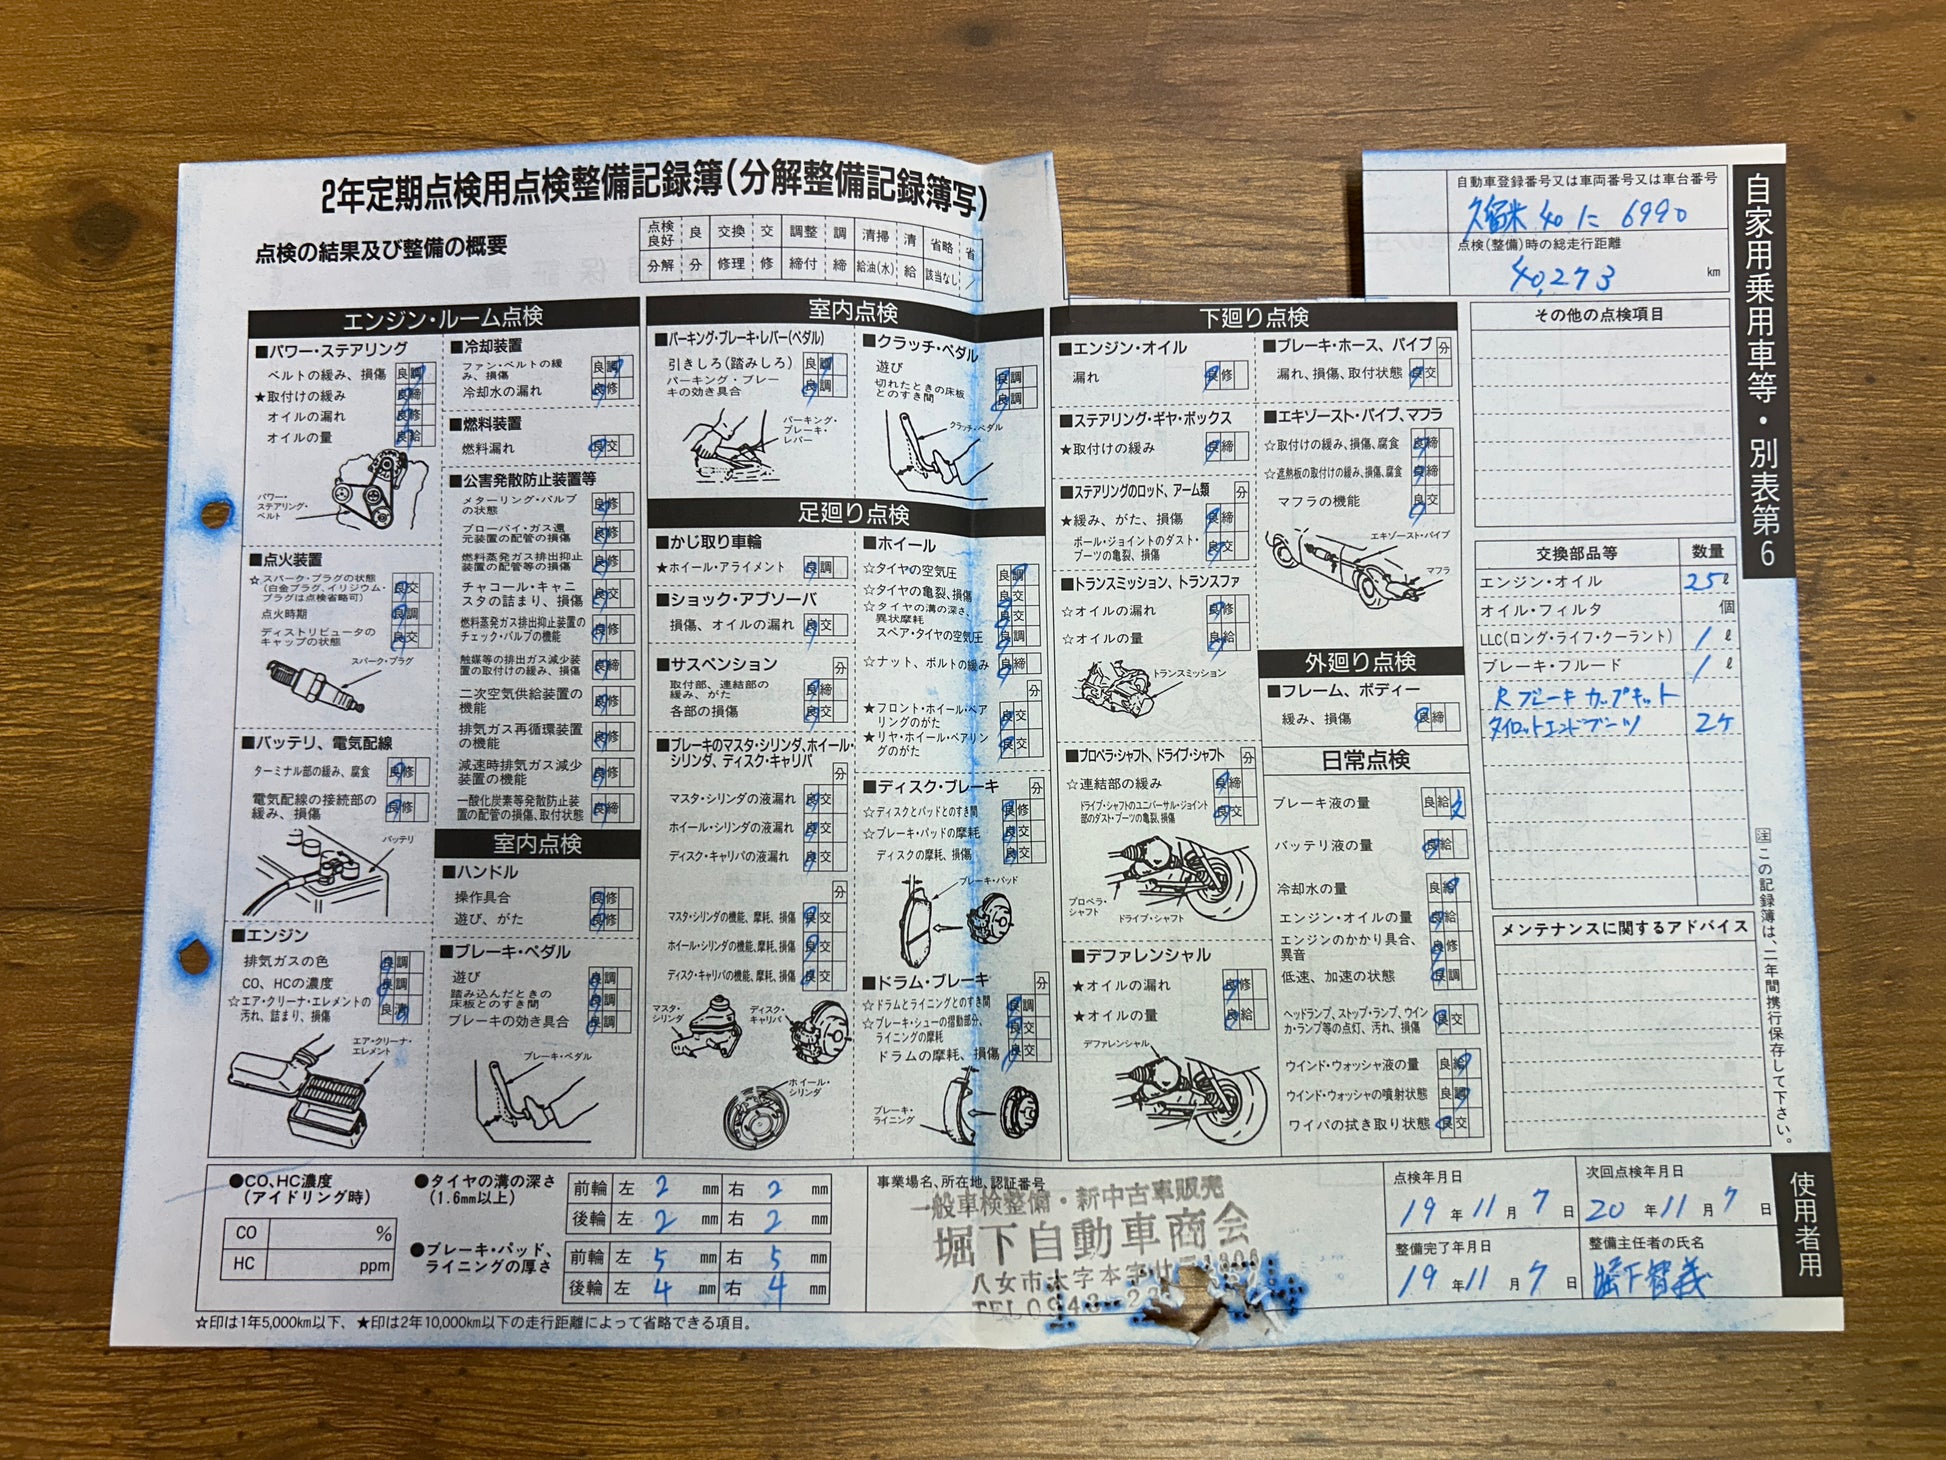 2年定期点検用点検整備記録簿(分解整備記録簿写)
点検の結果及び整備の概要
点検良好 良 交換 交 調整 調 清掃 清 省略 省
分解 分 修理 修 締付 締 給油(水) 給 該当なし /
自動車登録番号又は車両番号又は車台番号
久留米 40 に 6990
点検(整備)時の総走行距離
40,273 km
自家用乗用車等・別表第6
エンジン・ルーム点検
■パワー・ステアリング
ベルトの緩み、損傷 良 調
★取付けの緩み 良 締
オイルの漏れ 良 修
オイルの量 良 給
パワー・ステアリング・ベルト
■点火装置
☆スパーク・プラグの状態 良 交
(白金プラグ、イリジウム・プラグは点検省略可)
点火時期 良 調
ディストリビュータのキャップの状態 良 交
スパーク・プラグ
■バッテリ、電気配線
ターミナル部の緩み、腐食 良 修
電気配線の接続部の緩み、損傷 良 修
バッテリ
■エンジン
排気ガスの色 良 調
CO、HCの濃度 良 調
☆エア・クリーナ・エレメントの汚れ、詰まり、損傷 良 清
エア・クリーナ・エレメント
■冷却装置
ファン・ベルトの緩み、損傷 良 調
冷却水の漏れ 良 修
■燃料装置
燃料漏れ 良 交
■公害発散防止装置等
メターリング・バルブの状態 良 修
ブローバイ・ガス還元装置の配管の損傷 良 修
燃料蒸発ガス排出抑止装置の配管等の損傷 良 修
チャコール・キャニスタの詰まり、損傷 良 交
燃料蒸発ガス排出抑止装置のチェック・バルブの機能 良 修
触媒等の排出ガス減少装置の取付けの緩み、損傷 良 締
二次空気供給装置の機能 良 修
排気ガス再循環装置の機能 良 修
減速時排気ガス減少装置の機能 良 修
一酸化炭素等発散防止装置の配管の損傷、取付状態 良 締
室内点検
■ハンドル
操作具合 良 修
遊び、がた 良 修
■ブレーキ・ペダル
遊び 良 調
踏み込んだときの床板とのすき間 良 調
ブレーキの効き具合 良 調
ブレーキ・ペダル
室内点検
■パーキング・ブレーキ・レバー(ペダル)
引きしろ(踏みしろ) 良 調
パーキング・ブレーキの効き具合 良 調
パーキング・ブレーキ・レバー
■クラッチ・ペダル
遊び 良 調
切れたときの床板とのすき間 良 調
クラッチ・ペダル
足廻り点検
■かじ取り車輪
★ホイール・アライメント 良 調
■ショック・アブソーバ
損傷、オイルの漏れ 良 交
■サスペンション 分
取付部、連結部の緩み、がた 良 締
各部の損傷 良 交
■ブレーキのマスタ・シリンダ、ホイール・シリンダ、ディスク・キャリパ 分
マスタ・シリンダの液漏れ 良 交
ホイール・シリンダの液漏れ 良 交
ディスク・キャリパの液漏れ 良 交
分
マスタ・シリンダの機能、摩耗、損傷 良 交
ホイール・シリンダの機能、摩耗、損傷 良 交
ディスク・キャリパの機能、摩耗、損傷 良 交
マスタ・シリンダ
ディスク・キャリパ
ホイール・シリンダ
■ホイール
☆タイヤの空気圧 良 調
☆タイヤの亀裂、損傷 良 交
☆タイヤの溝の深さ、異状摩耗 良 交
スペア・タイヤの空気圧 良 調
☆ナット、ボルトの緩み 良 締
分
★フロント・ホイール・ベアリングのがた 良 交
★リヤ・ホイール・ベアリングのがた 良 交
■ディスク・ブレーキ 分
☆ディスクとパッドとのすき間 良 修
☆ブレーキ・パッドの摩耗 良 交
ディスクの摩耗、損傷 良 交
ブレーキ・パッド
■ドラム・ブレーキ 分
☆ドラムとライニングとのすき間 良 調
☆ブレーキ・シューの摺動部分、ライニングの摩耗 良 交
ドラムの摩耗、損傷 良 交
ブレーキ・ライニング
下廻り点検
■エンジン・オイル
漏れ 良 修
■ステアリング・ギヤ・ボックス
★取付けの緩み 良 締
■ステアリングのロッド、アーム類 分
★緩み、がた、損傷 良 締
ボール・ジョイントのダスト・ブーツの亀裂、損傷 良 交
■トランスミッション、トランスファ
☆オイルの漏れ 良 修
☆オイルの量 良 給
トランスミッション
■プロペラ・シャフト、ドライブ・シャフト 分
☆連結部の緩み 良 締
ドライブ・シャフトのユニバーサル・ジョイント部のダスト・ブーツの亀裂、損傷 良 交
プロペラ・シャフト
ドライブ・シャフト
■デファレンシャル
★オイルの漏れ 良 修
★オイルの量 良 給
デファレンシャル
■ブレーキ・ホース、パイプ 分
漏れ、損傷、取付状態 良 交
■エキゾースト・パイプ、マフラ
☆取付けの緩み、損傷、腐食 良 締
☆遮熱板の取付けの緩み、損傷、腐食 良 締
マフラの機能 良 交
エキゾースト・パイプ
マフラ
外廻り点検
■フレーム、ボディー
緩み、損傷 良 締
日常点検
ブレーキ液の量 良 給
バッテリ液の量 良 給
冷却水の量 良 給
エンジン・オイルの量 良 給
エンジンのかかり具合、異音 良 修
低速、加速の状態 良 調
ヘッドランプ、ストップ・ランプ、ウインカ・ランプ等の点灯、汚れ、損傷 良 交
ウインド・ウォッシャ液の量 良 給
ウインド・ウォッシャの噴射状態 良 調
ワイパの拭き取り状態 良 交
その他の点検項目
交換部品等 数量
エンジン・オイル 2.5 ℓ
オイル・フィルタ 個
LLC(ロング・ライフ・クーラント) 1 ℓ
ブレーキ・フルード 1 ℓ
Rブレーキカップキット
タイロットエンドブーツ 2ケ
メンテナンスに関するアドバイス
注 この記録簿は、二年間携行保存して下さい。
使用者用
●CO、HC濃度(アイドリング時)
CO %
HC ppm
●タイヤの溝の深さ(1.6mm以上)
前輪 左 2 mm 右 2 mm
後輪 左 2 mm 右 2 mm
●ブレーキ・パッド、ライニングの厚さ
前輪 左 5 mm 右 5 mm
後輪 左 4 mm 右 4 mm
事業場名、所在地、認証番号
一般車検整備・新中古車販売
堀下自動車商会
八女市大字本
TEL0943-23
点検年月日
19年11月7日
次回点検年月日
20年11月7日
整備完了年月日
19年11月7日
整備主任者の氏名
堀下智義
☆印は1年5,000km以下、★印は2年10,000km以下の走行距離によって省略できる項目。